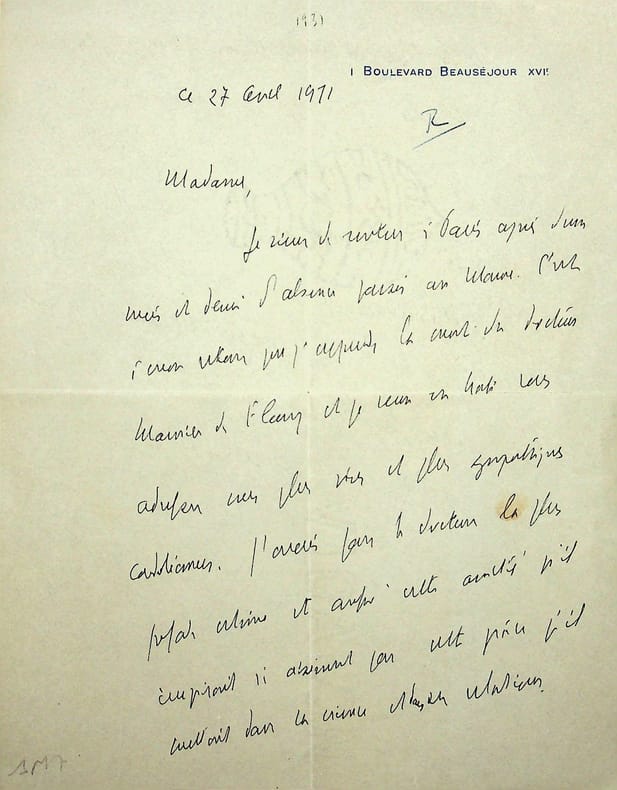 1931
1 BOULEVARD BEAUSÉJOUR XVIE
ce 27 avril 1931
R
Madame,
Je viens de rentrer à Paris après d'un
mois et demi d'absence passés au Maroc. C'est
à mon retour que j'apprends la mort du docteur
Maurice de Fleury et je veux en hâte vous
adresser mes plus vives et plus sympathiques
condoléances. J'avais pour le docteur la plus
parfaite estime et aussi cette amitié qu'il
inspirait si aisément par cette grâce qu'il
mettait dans la science et dans les relations.